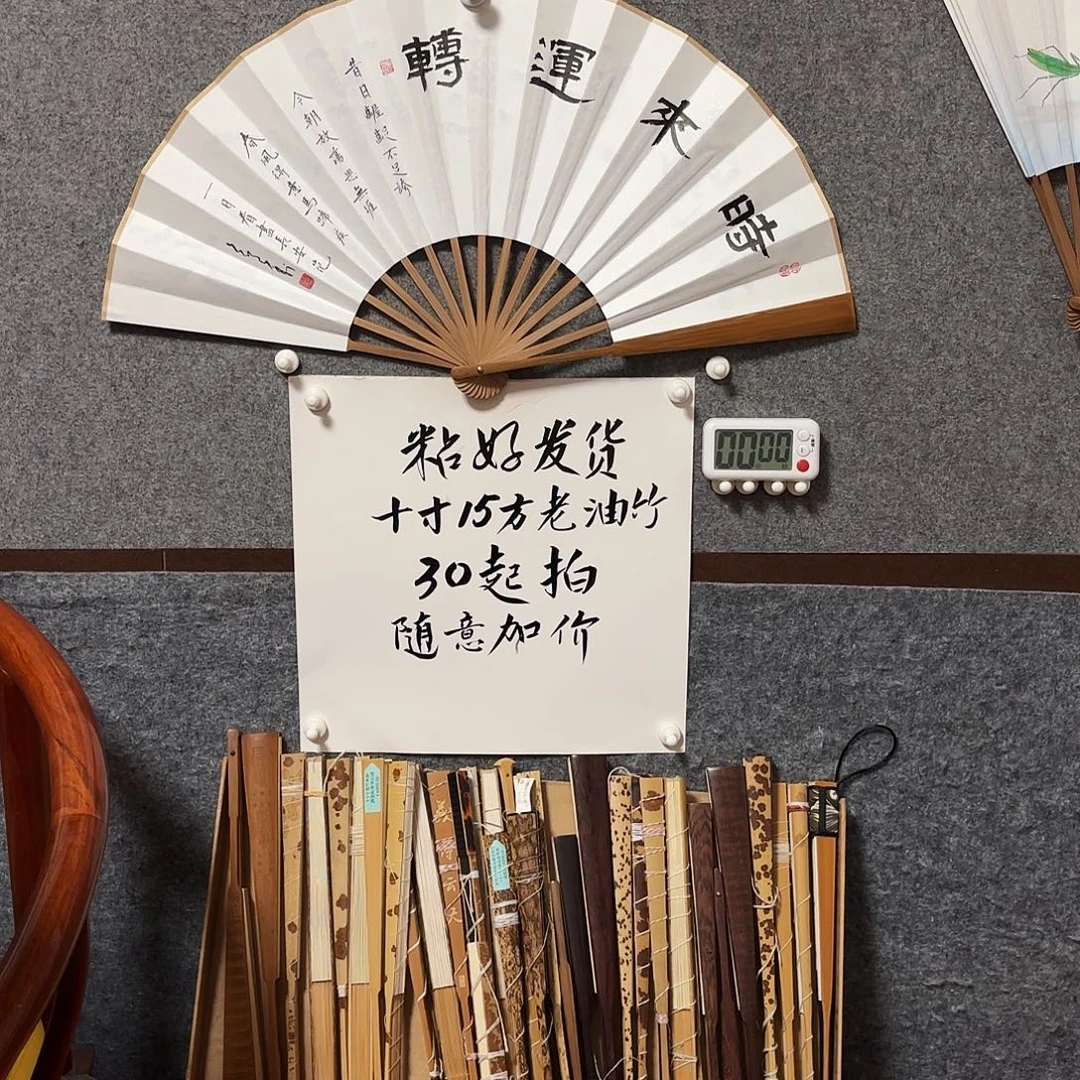 時來運轉
昔日齷齪不足誇
今朝放蕩思無涯
春風得意馬蹄疾
一日看盡長安花
粘好发货
十寸15方老油竹
30起拍
随意加价
00:00